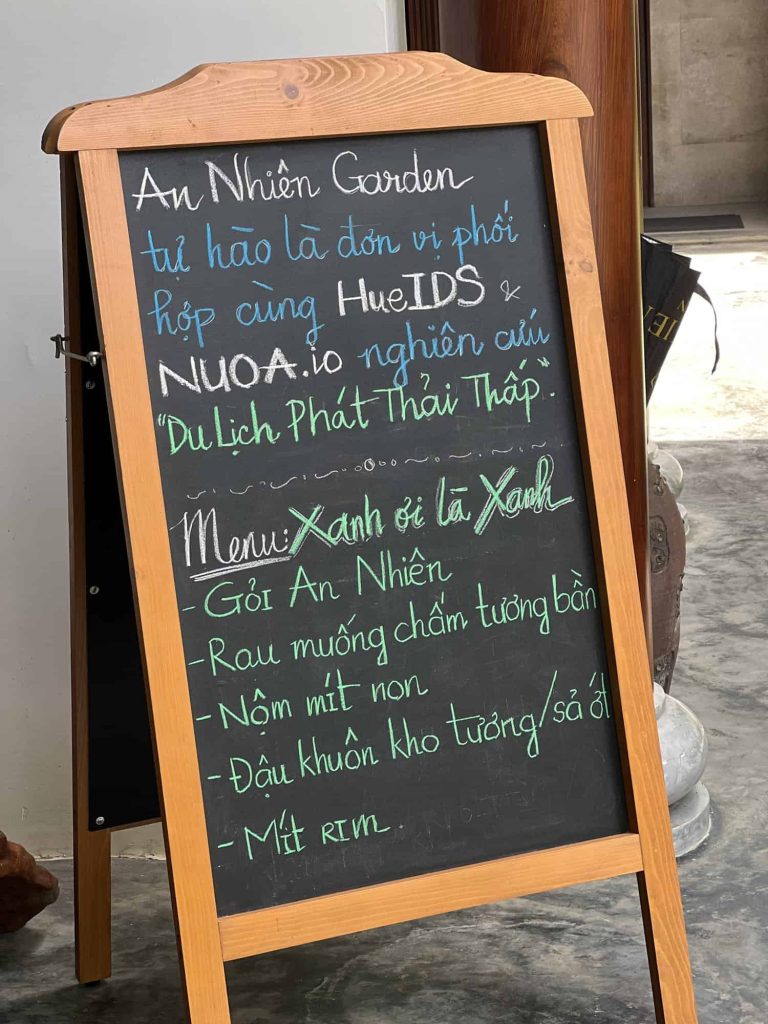 An Nhiên Garden
tự hào là đơn vị phối
hợp cùng HueIDS &
NUOA.io nghiên cứu
"Du Lịch Phát Thải Thấp".
Menu: Xanh ơi là Xanh
- Gỏi An Nhiên
- Rau muống chấm tương bần
- Nộm mít non
- Đậu khuôn kho tương/sả ớt
- Mít rim